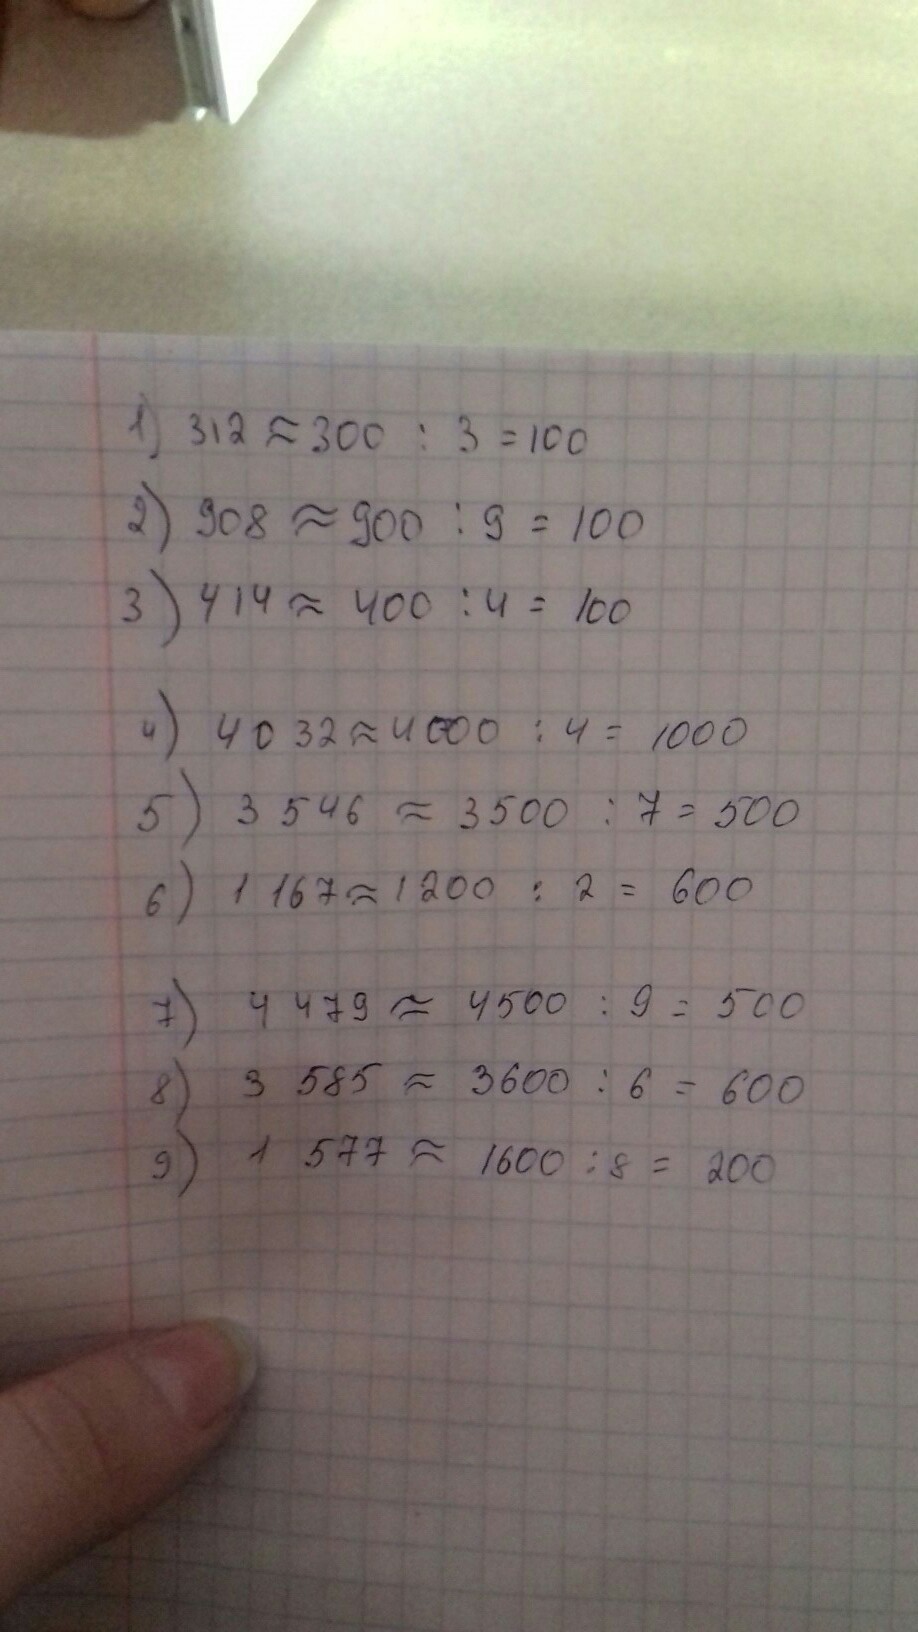 1) 312 ≈ 300 : 3 = 100
2) 908 ≈ 900 : 9 = 100
3) 414 ≈ 400 : 4 = 100
4) 4032 ≈ 4000 : 4 = 1000
5) 3 546 ≈ 3500 : 7 = 500
6) 1 167 ≈ 1200 : 2 = 600
7) 4 479 ≈ 4500 : 9 = 500
8) 3 585 ≈ 3600 : 6 = 600
9) 1 577 ≈ 1600 : 8 = 200